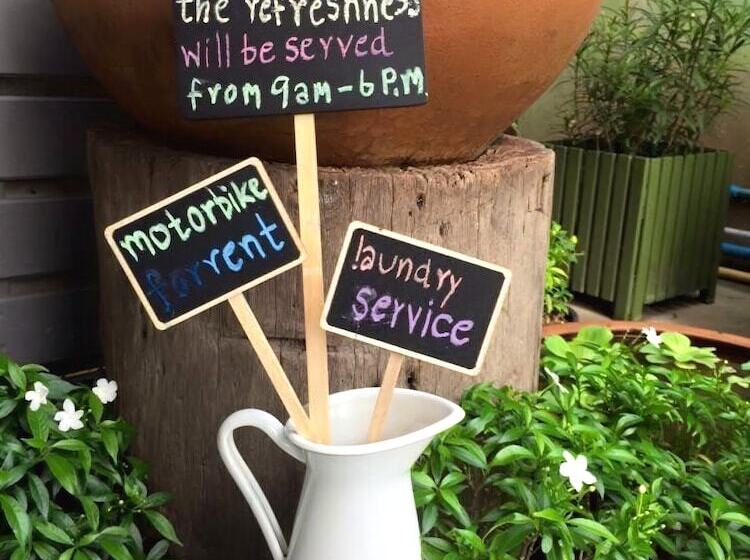 the refreshness
will be served
from 9am-6P.M.
motorbike
for rent
laundry
service